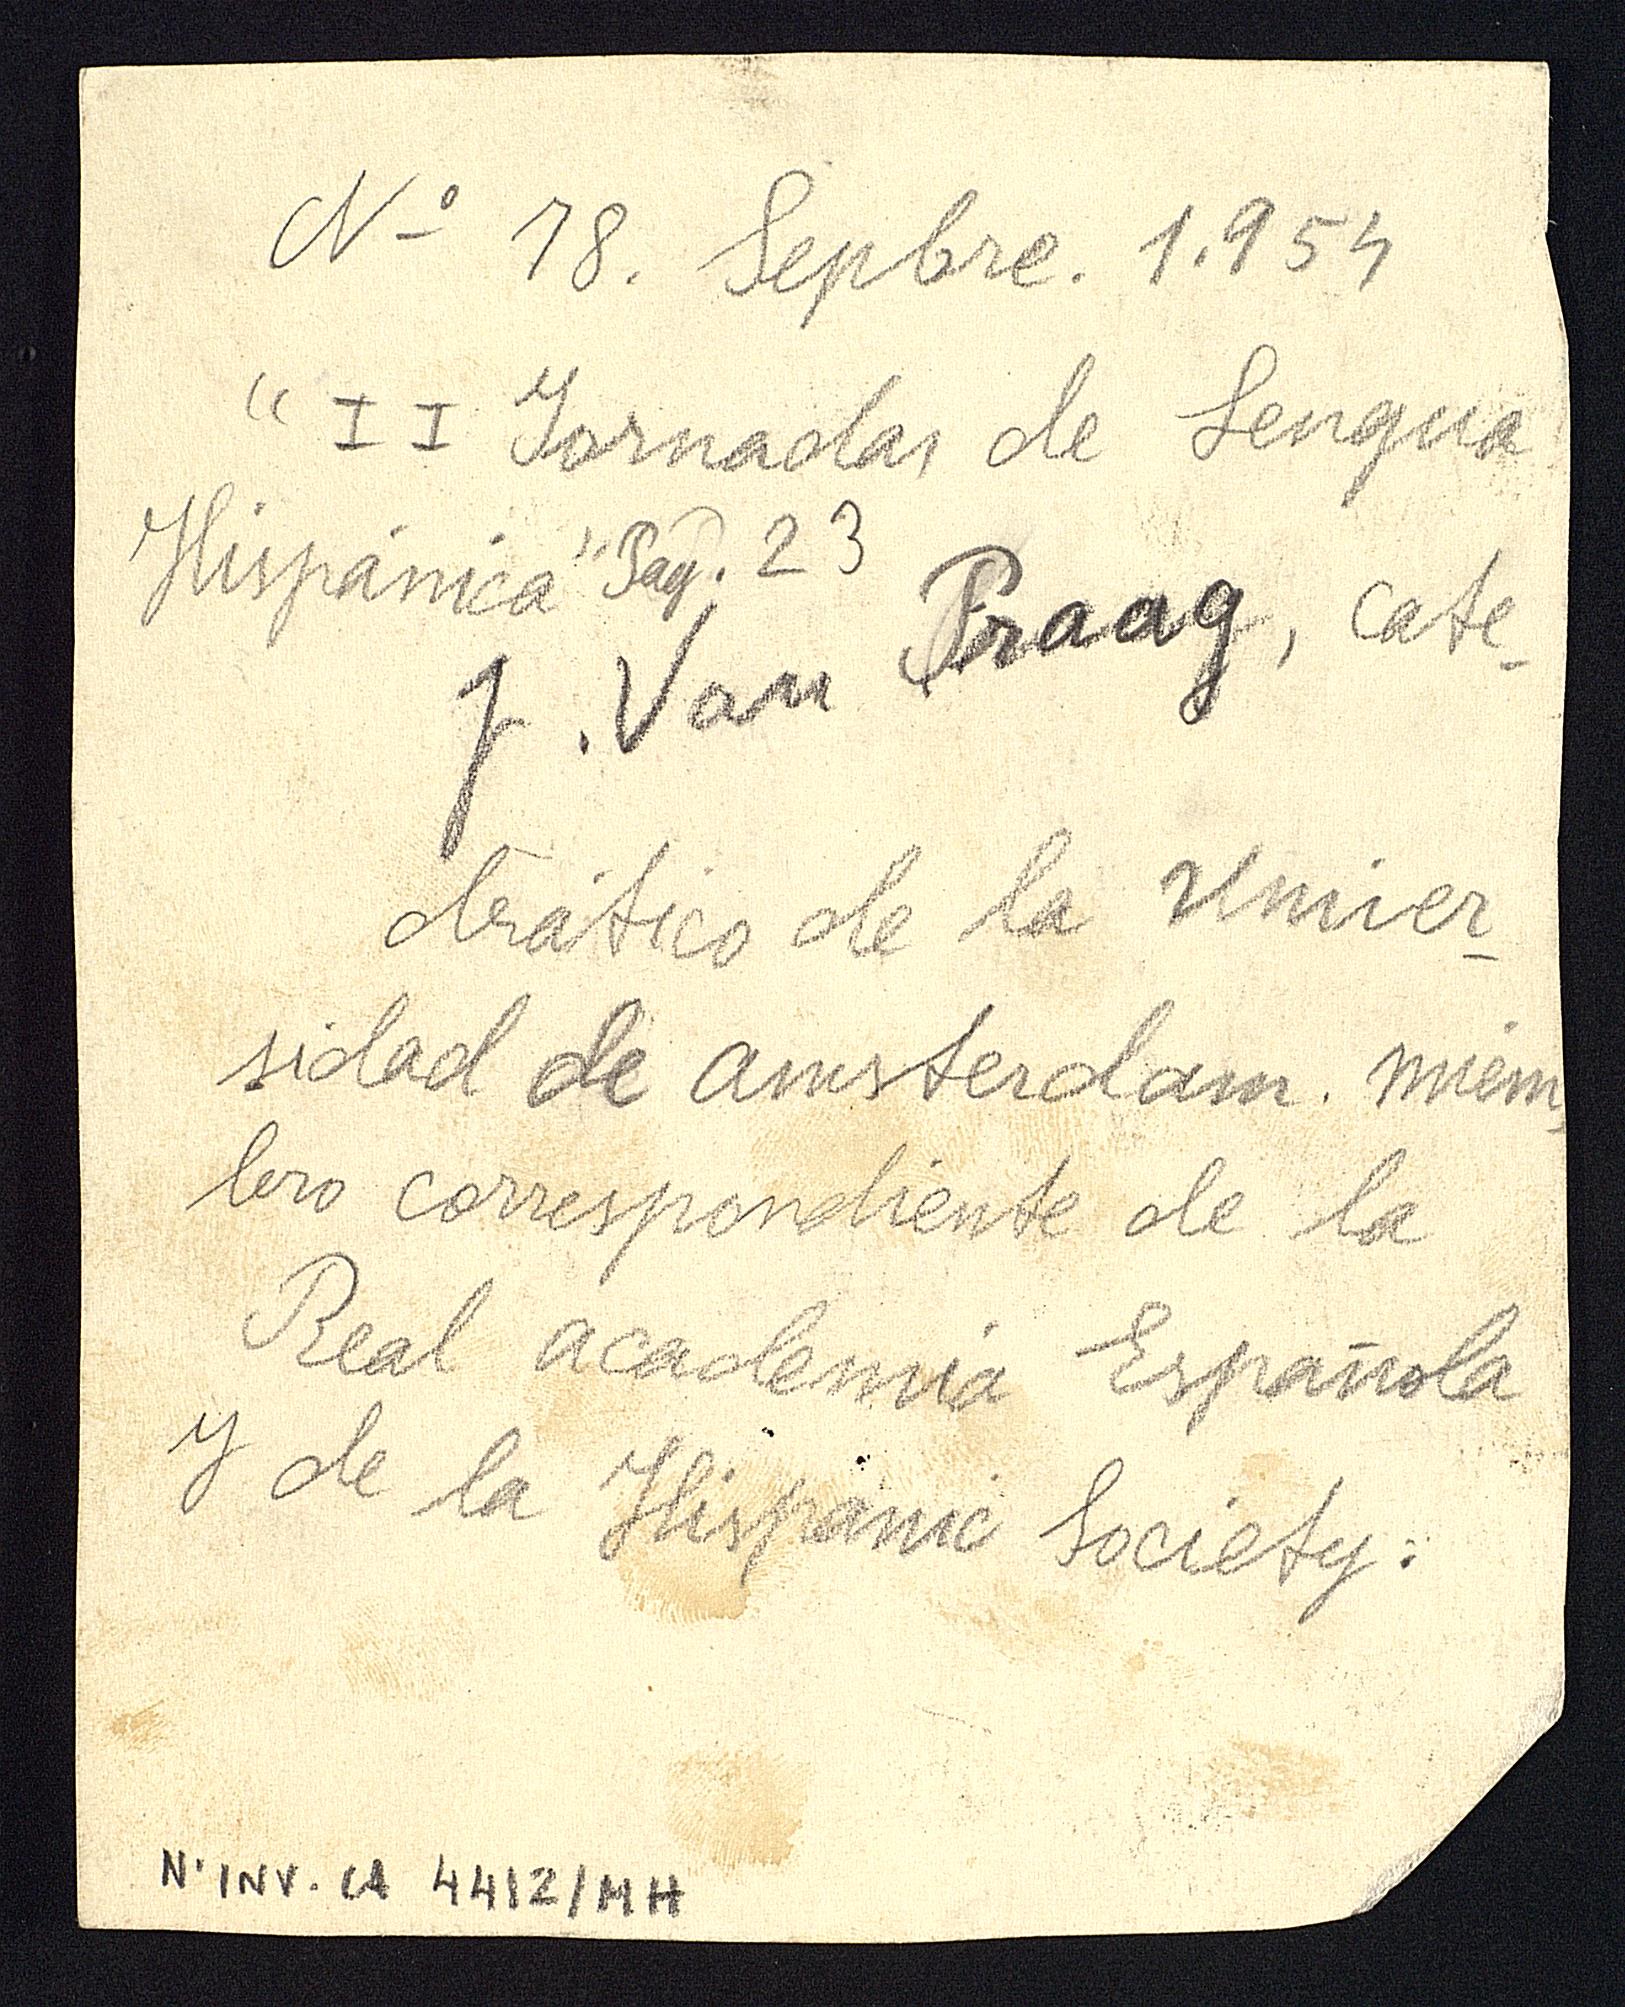 Nº 78. Sepbre. 1.954
"II Jornadas de Lengua
Hispánica" Pag. 23
J. Van Praag, cate-
drático de la Univer-
sidad de amsterdam. miem-
bro correspondiente de la
Real academia Española
y de la Hispanic Society.
Nº INV. CA 4412/MH